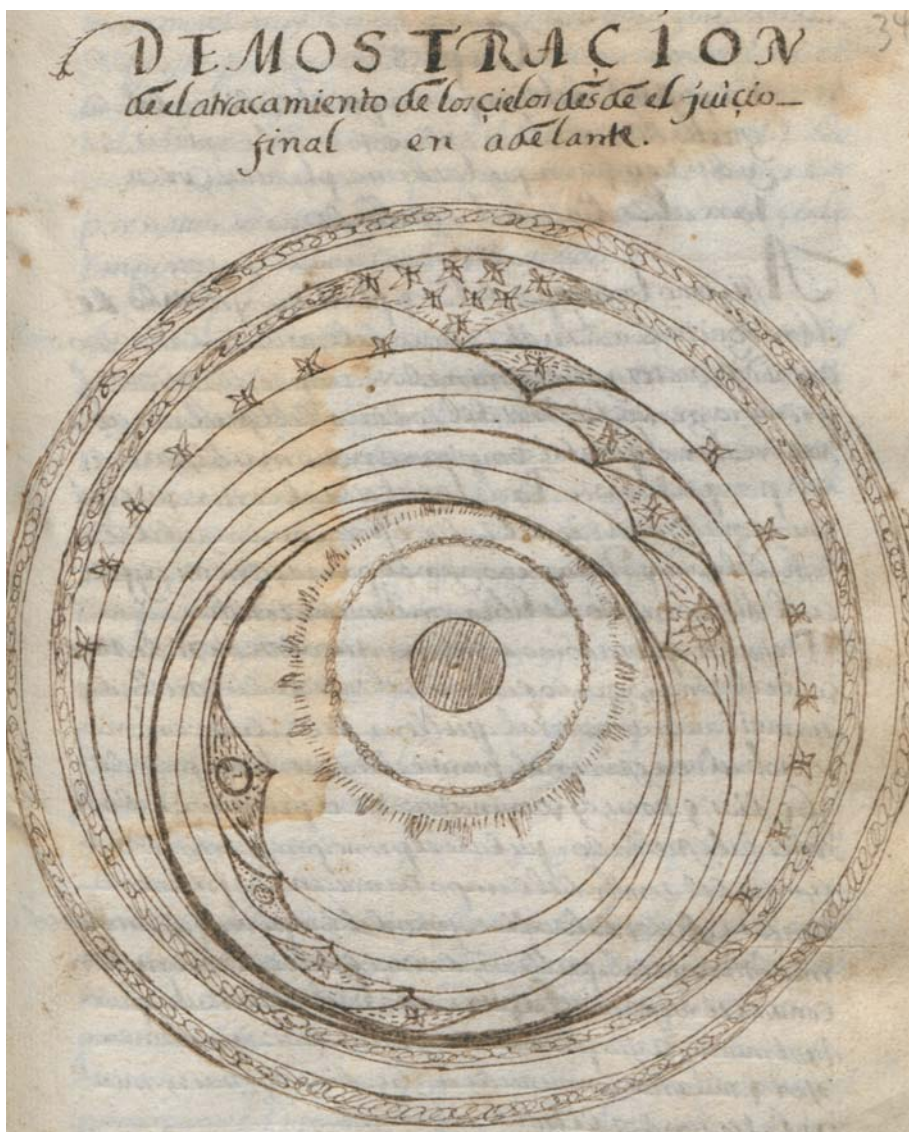 34
DEMOSTRAÇION
de el atracamiento de los çielos desde el juiçio
final en adelante.